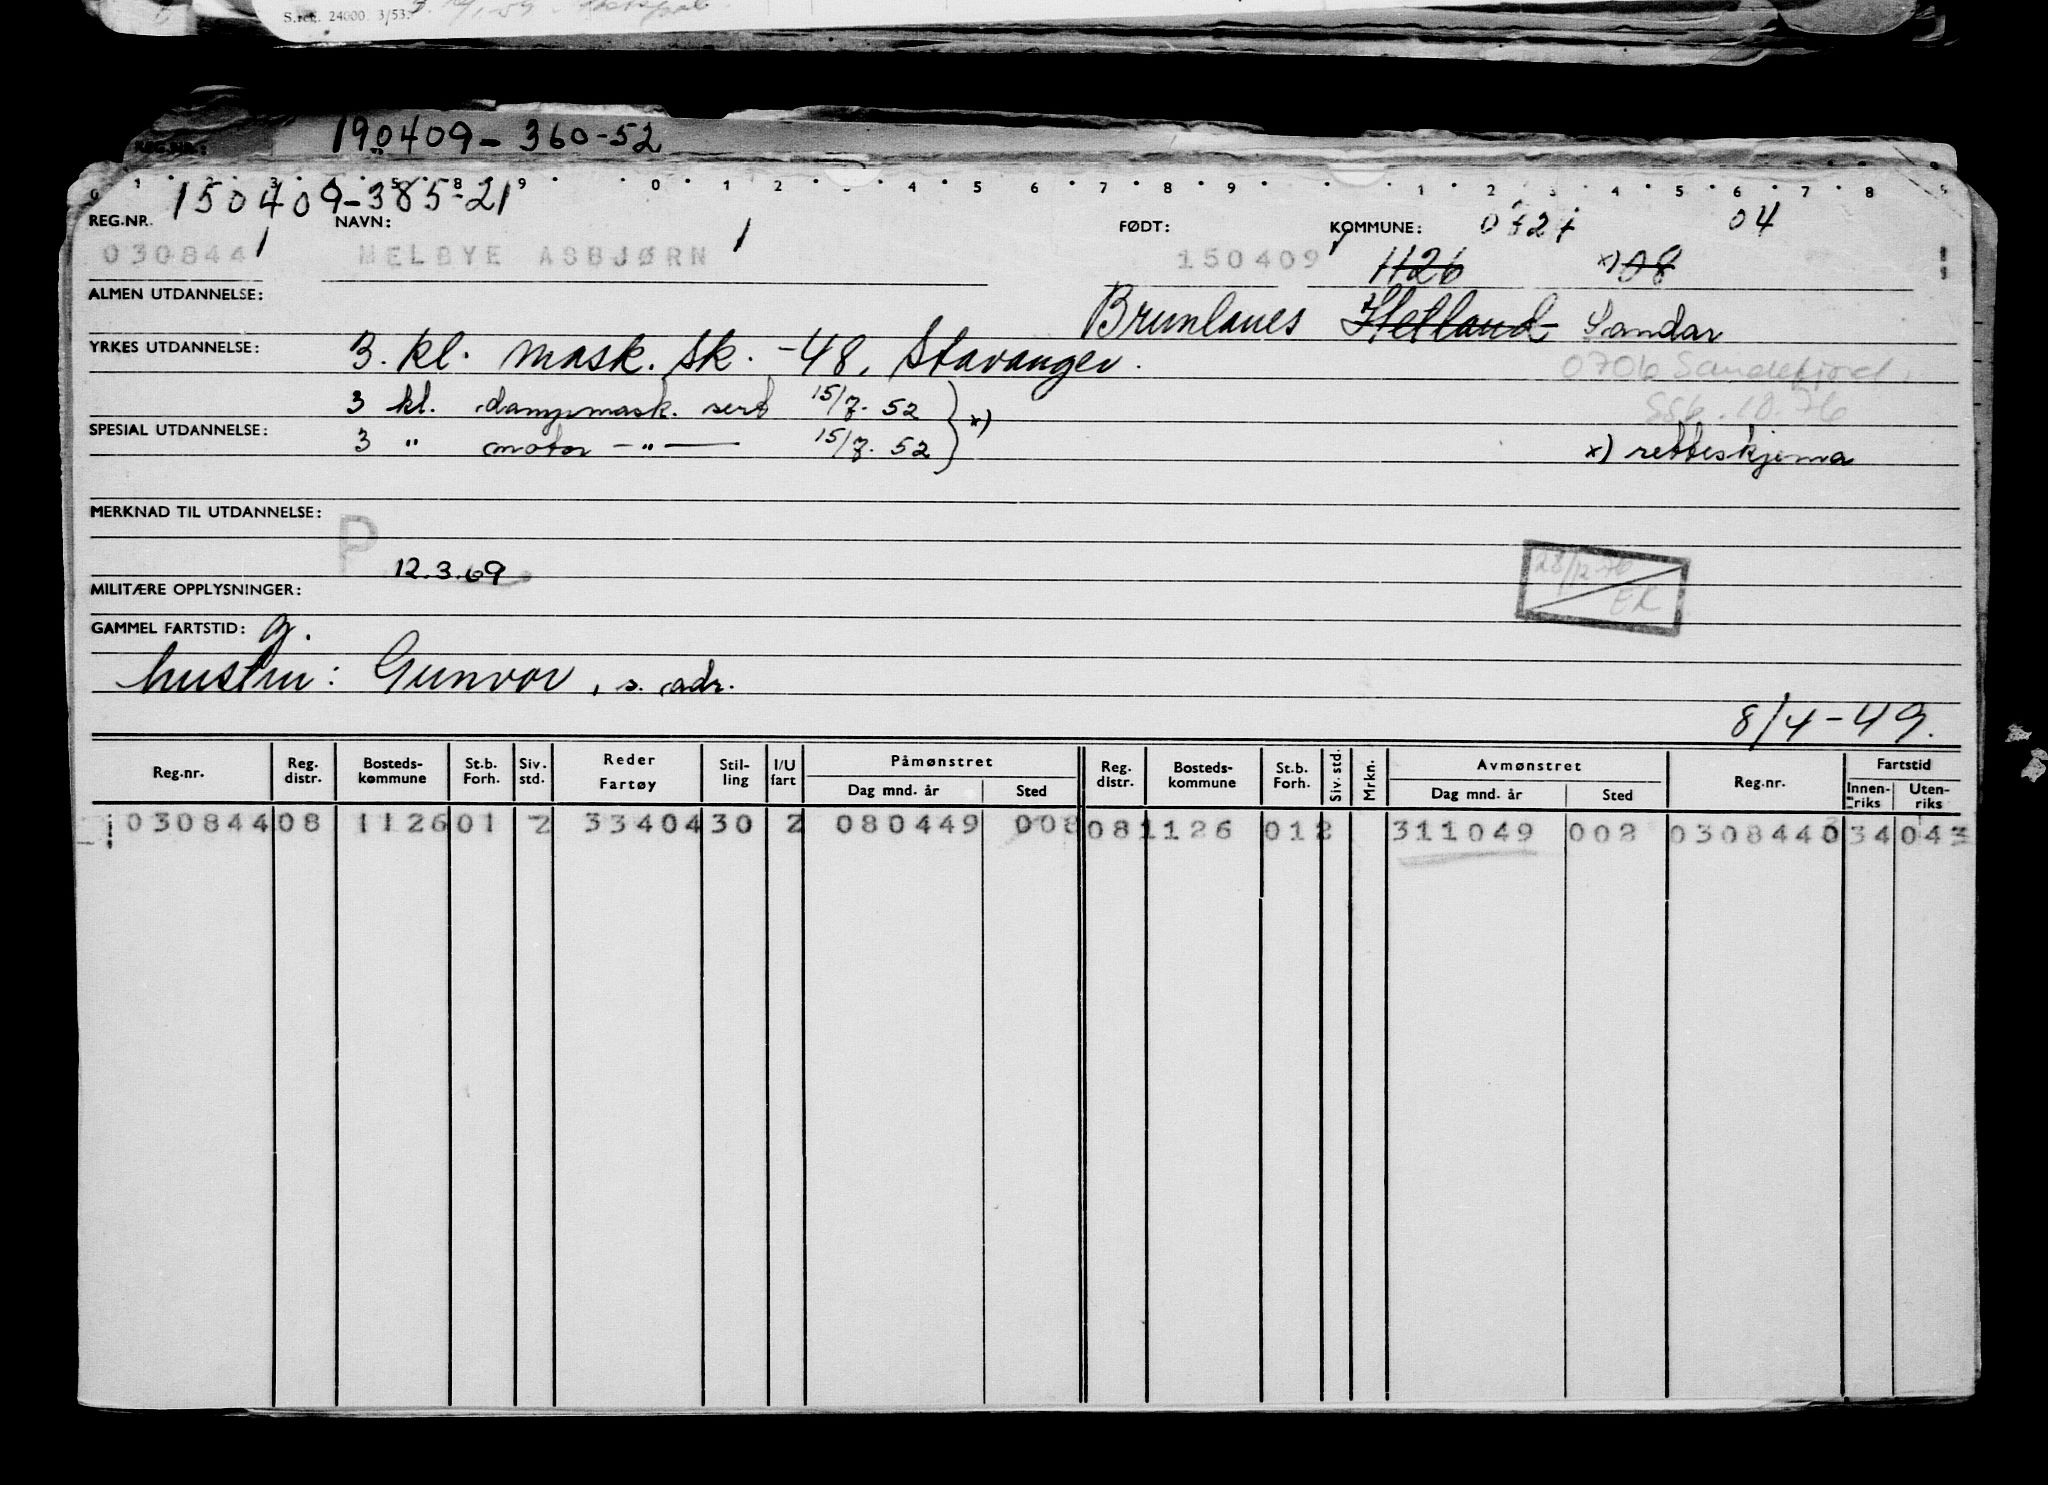 S.reg. 24000. 3/53.
190409-360-52
REG.NR.:
150409-385-21
REG.NR. NAVN: FØDT: KOMMUNE: 04
030844 MELBYE ASBJØRN 150409 1126 x) 08
ALMEN UTDANNELSE: Brunlanes Hetland Sandar
YRKES UTDANNELSE: 3. kl. mask. sk. -48, Stavanger.
0706 Sandefjord
3 kl. dampmask. sert 15/7. 52 } x)
SSk. 10.76
SPESIAL UTDANNELSE: 3 " motor - " - 15/7. 52
x) retteskjema
MERKNAD TIL UTDANNELSE:
P
12.3.69
28/12-76
ER
MILITÆRE OPPLYSNINGER:
GAMMEL FARTSTID: g.
hustru: Gunvor, s. adr.
8/4-49.
Reg.nr. Reg. distr. Bosteds-kommune St.b. Forh. Siv. std. Reder Fartøy Stil-ling I/U fart Påmønstret Dag mnd. år Sted Reg. distr. Bosteds-kommune St.b. Forh. Siv. std. Mrkn. Avmønstret Dag mnd. år Sted Reg.nr. Fartstid Innen-riks Uten-riks
030844 08 1126 01 2 33404 30 2 080449 008 08 1126 01 2 311049 002 030844 034 043